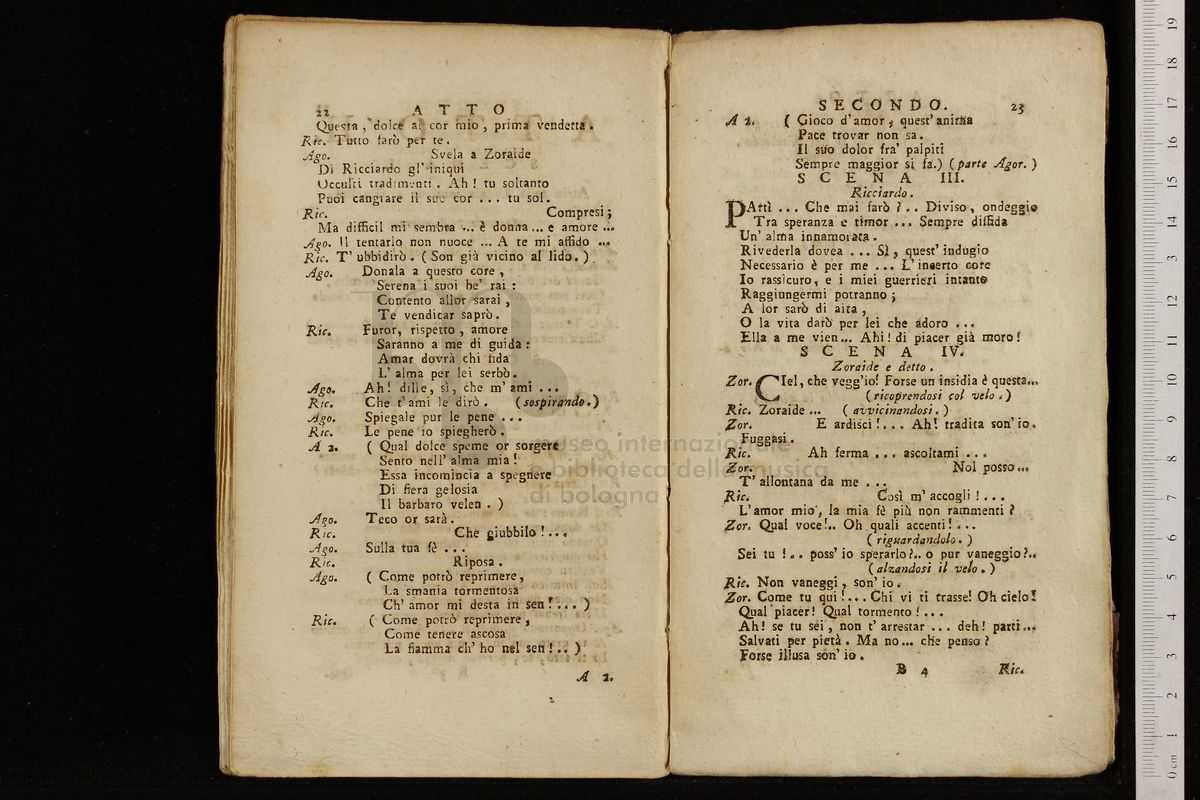 22 ATTO
Questa, dolce al cor mio, prima vendetta.
Ric. Tutto farò per te.
Ago. Svela a Zoraide
Di Ricciardo gl' iniqui
Occulti tradimenti. Ah! tu soltanto
Puoi cangiare il suo cor ... tu sol.
Ric. Compresi;
Ma difficil mi sembra ... è donna ... e amore ...
Ago. Il tentarlo non nuoce ... A te mi affido ...
Ric. T' ubbidirò. (Son già vicino al lido.)
Ago. Donala a questo core,
Serena i suoi be' rai:
Contento allor sarai,
Te vendicar saprò.
Ric. Furor, rispetto, amore
Saranno a me di guida:
Amar dovrà chi fida
L' alma per lei serbò.
Ago. Ah! dille, sì, che m' ami ...
Ric. Che t' ami le dirò. (sospirando.)
Ago. Spiegale pur le pene ...
Ric. Le pene io spiegherò.
A 2. ( Qual dolce speme or sorgere
Sento nell' alma mia!
Essa incomincia a spegnere
Di fiera gelosia
Il barbaro velen. )
Ago. Teco or sarà.
Ric. Che giubbilo!...
Ago. Sulla tua fè ...
Ric. Riposa.
Ago. ( Come potrò reprimere,
La smania tormentosa
Ch' amor mi desta in sen!... )
Ric. ( Come potrò reprimere,
Come tenere ascosa
La fiamma ch' ho nel sen!.. )
A 2.
SECONDO. 23
A 2. ( Gioco d' amor, quest' anima
Pace trovar non sa.
Il suo dolor fra' palpiti
Sempre maggior si fa.) (parte Agor.)
SCENA III.
Ricciardo.
PArtì ... Che mai farò?.. Diviso, ondeggio
Tra speranza e timor ... Sempre diffida
Un' alma innamorata.
Rivederla dovea ... Sì, quest' indugio
Necessario è per me ... L' incerto core
Io rassicuro, e i miei guerrieri intanto
Raggiungermi potranno;
A lor sarò di aita,
O la vita darò per lei che adoro ...
Ella a me vien... Ahi! di piacer già moro!
SCENA IV.
Zoraide e detto.
Zor. CIel, che vegg'io! Forse un insidia è questa...
(ricoprendosi col velo.)
Ric. Zoraide ... (avvicinandosi.)
Zor. E ardisci!... Ah! tradita son' io.
Fuggasi.
Ric. Ah ferma ... ascoltami ...
Zor. Nol posso...
T' allontana da me ...
Ric. Così m' accogli!...
L' amor mio, la mia fè più non rammenti?
Zor. Qual voce!.. Oh quali accenti!...
(riguardandolo.)
Sei tu!.. poss' io sperarlo?.. o pur vaneggio?..
(alzandosi il velo.)
Ric. Non vaneggi, son' io.
Zor. Come tu qui!... Chi vi ti trasse! Oh cielo!
Qual piacer! Qual tormento!...
Ah! se tu sei, non t' arrestar ... deh! parti...
Salvati per pietà. Ma no... che penso?
Forse illusa son' io.
B 4 Ric.
museo internazionale
e biblioteca della musica
di bologna
0 cm 1 2 3 4 5 6 7 8 9 10 11 12 13 14 15 16 17 18 19